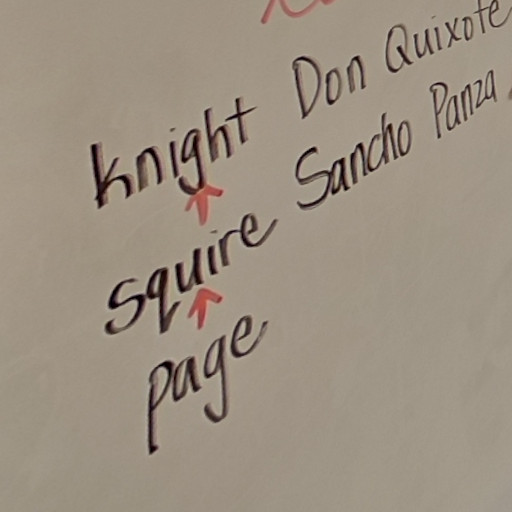 Knight Don Quixote
Squire Sancho Panza
page